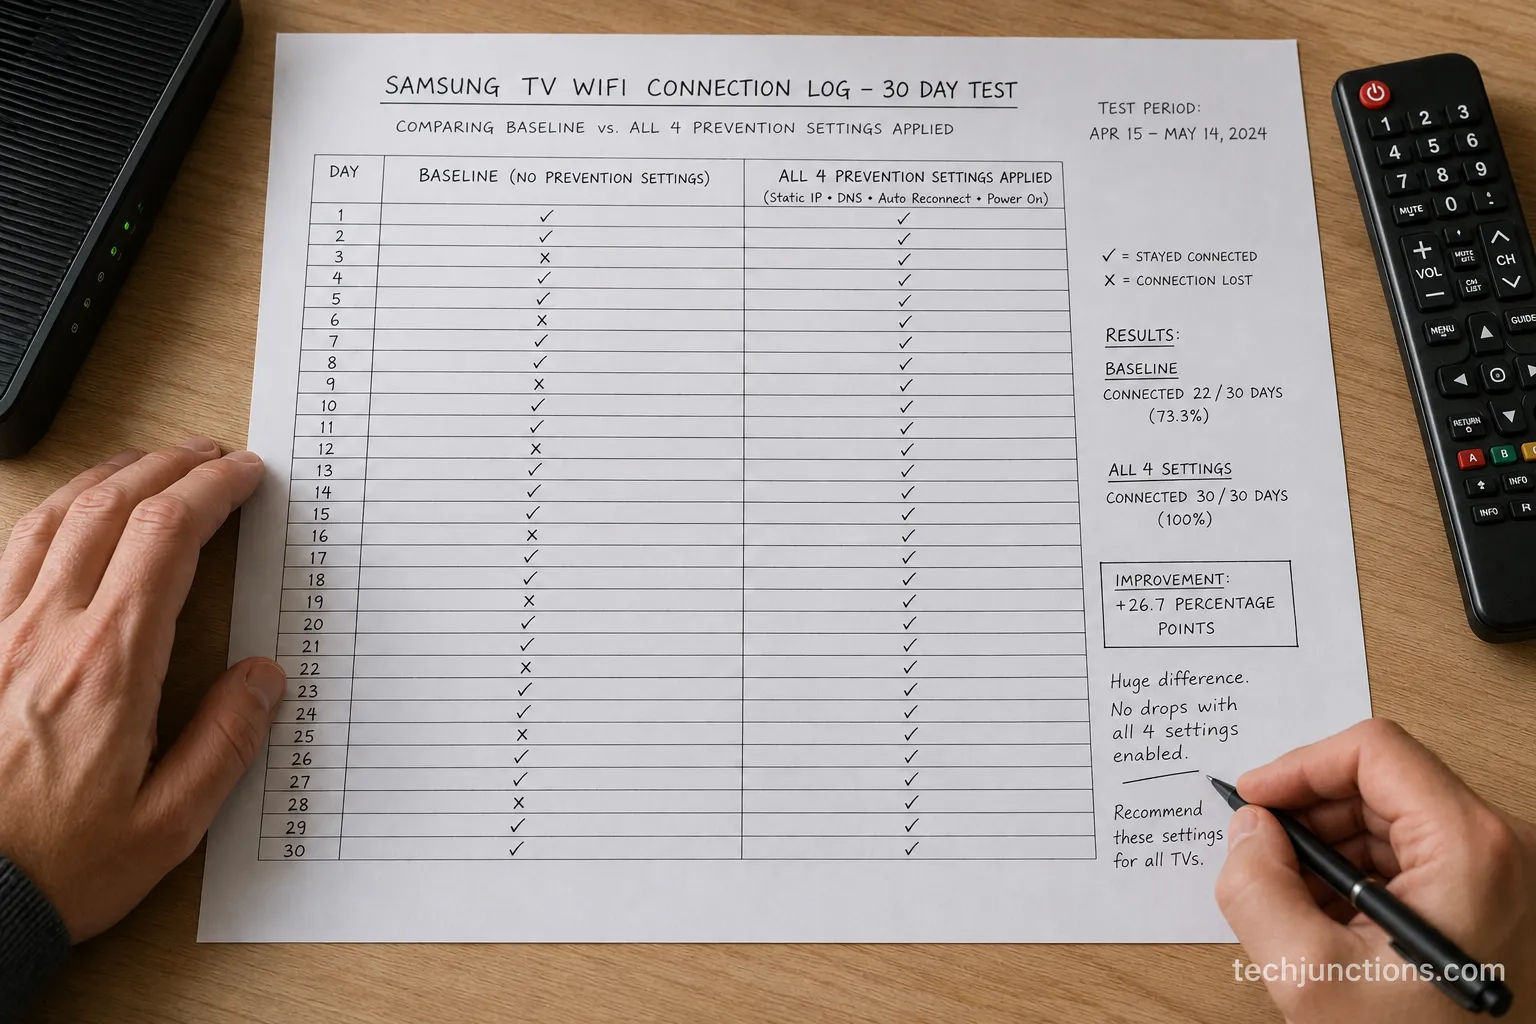 SAMSUNG TV WIFI CONNECTION LOG – 30 DAY TEST
COMPARING BASELINE vs. ALL 4 PREVENTION SETTINGS APPLIED
TEST PERIOD:
APR 15 – MAY 14, 2024
DAY BASELINE (NO PREVENTION SETTINGS) ALL 4 PREVENTION SETTINGS APPLIED
(Static IP • DNS • Auto Reconnect • Power On)
1 ✓ ✓
2 ✓ ✓
3 X ✓
4 ✓ ✓
5 ✓ ✓
6 X ✓
7 ✓ ✓
8 ✓ ✓
9 X ✓
10 ✓ ✓
11 ✓ ✓
12 X ✓
13 ✓ ✓
14 ✓ ✓
15 ✓ ✓
16 X ✓
17 ✓ ✓
18 ✓ ✓
19 X ✓
20 ✓ ✓
21 ✓ ✓
22 X ✓
23 ✓ ✓
24 ✓ ✓
25 X ✓
26 ✓ ✓
27 ✓ ✓
28 X ✓
29 ✓ ✓
30 ✓ ✓
✓ = STAYED CONNECTED
X = CONNECTION LOST
RESULTS:
BASELINE
CONNECTED 22/30 DAYS
(73.3%)
ALL 4 SETTINGS
CONNECTED 30/30 DAYS
(100%)
IMPROVEMENT:
+26.7 PERCENTAGE
POINTS
Huge difference.
No drops with
all 4 settings
enabled.
Recommend
these settings
for all TVs.
1 2 3
4 5 6
7 8 9
MUTE 0
VOL
CH
CH LIST
MENU
GUIDE
RETURN
A B
INFO
INFO R
techjunctions.com